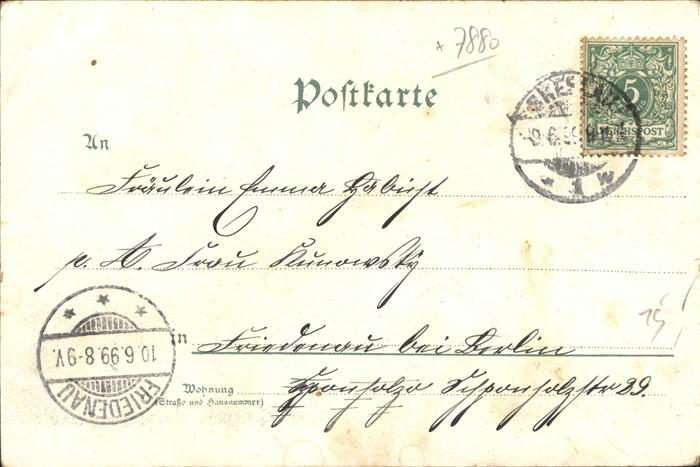 * 7880
Postkarte
5
REICHSPOST
BRESLAU
9.6.99
* 1 w
An
Fräulein Emma
p. A. Frau Kunowsky
15
in Friedenau bei Berlin
Wohnung Sponholzstr 29.
(Straße und Hausnummer)
10.6.99.8-9V.
FRIEDENAU